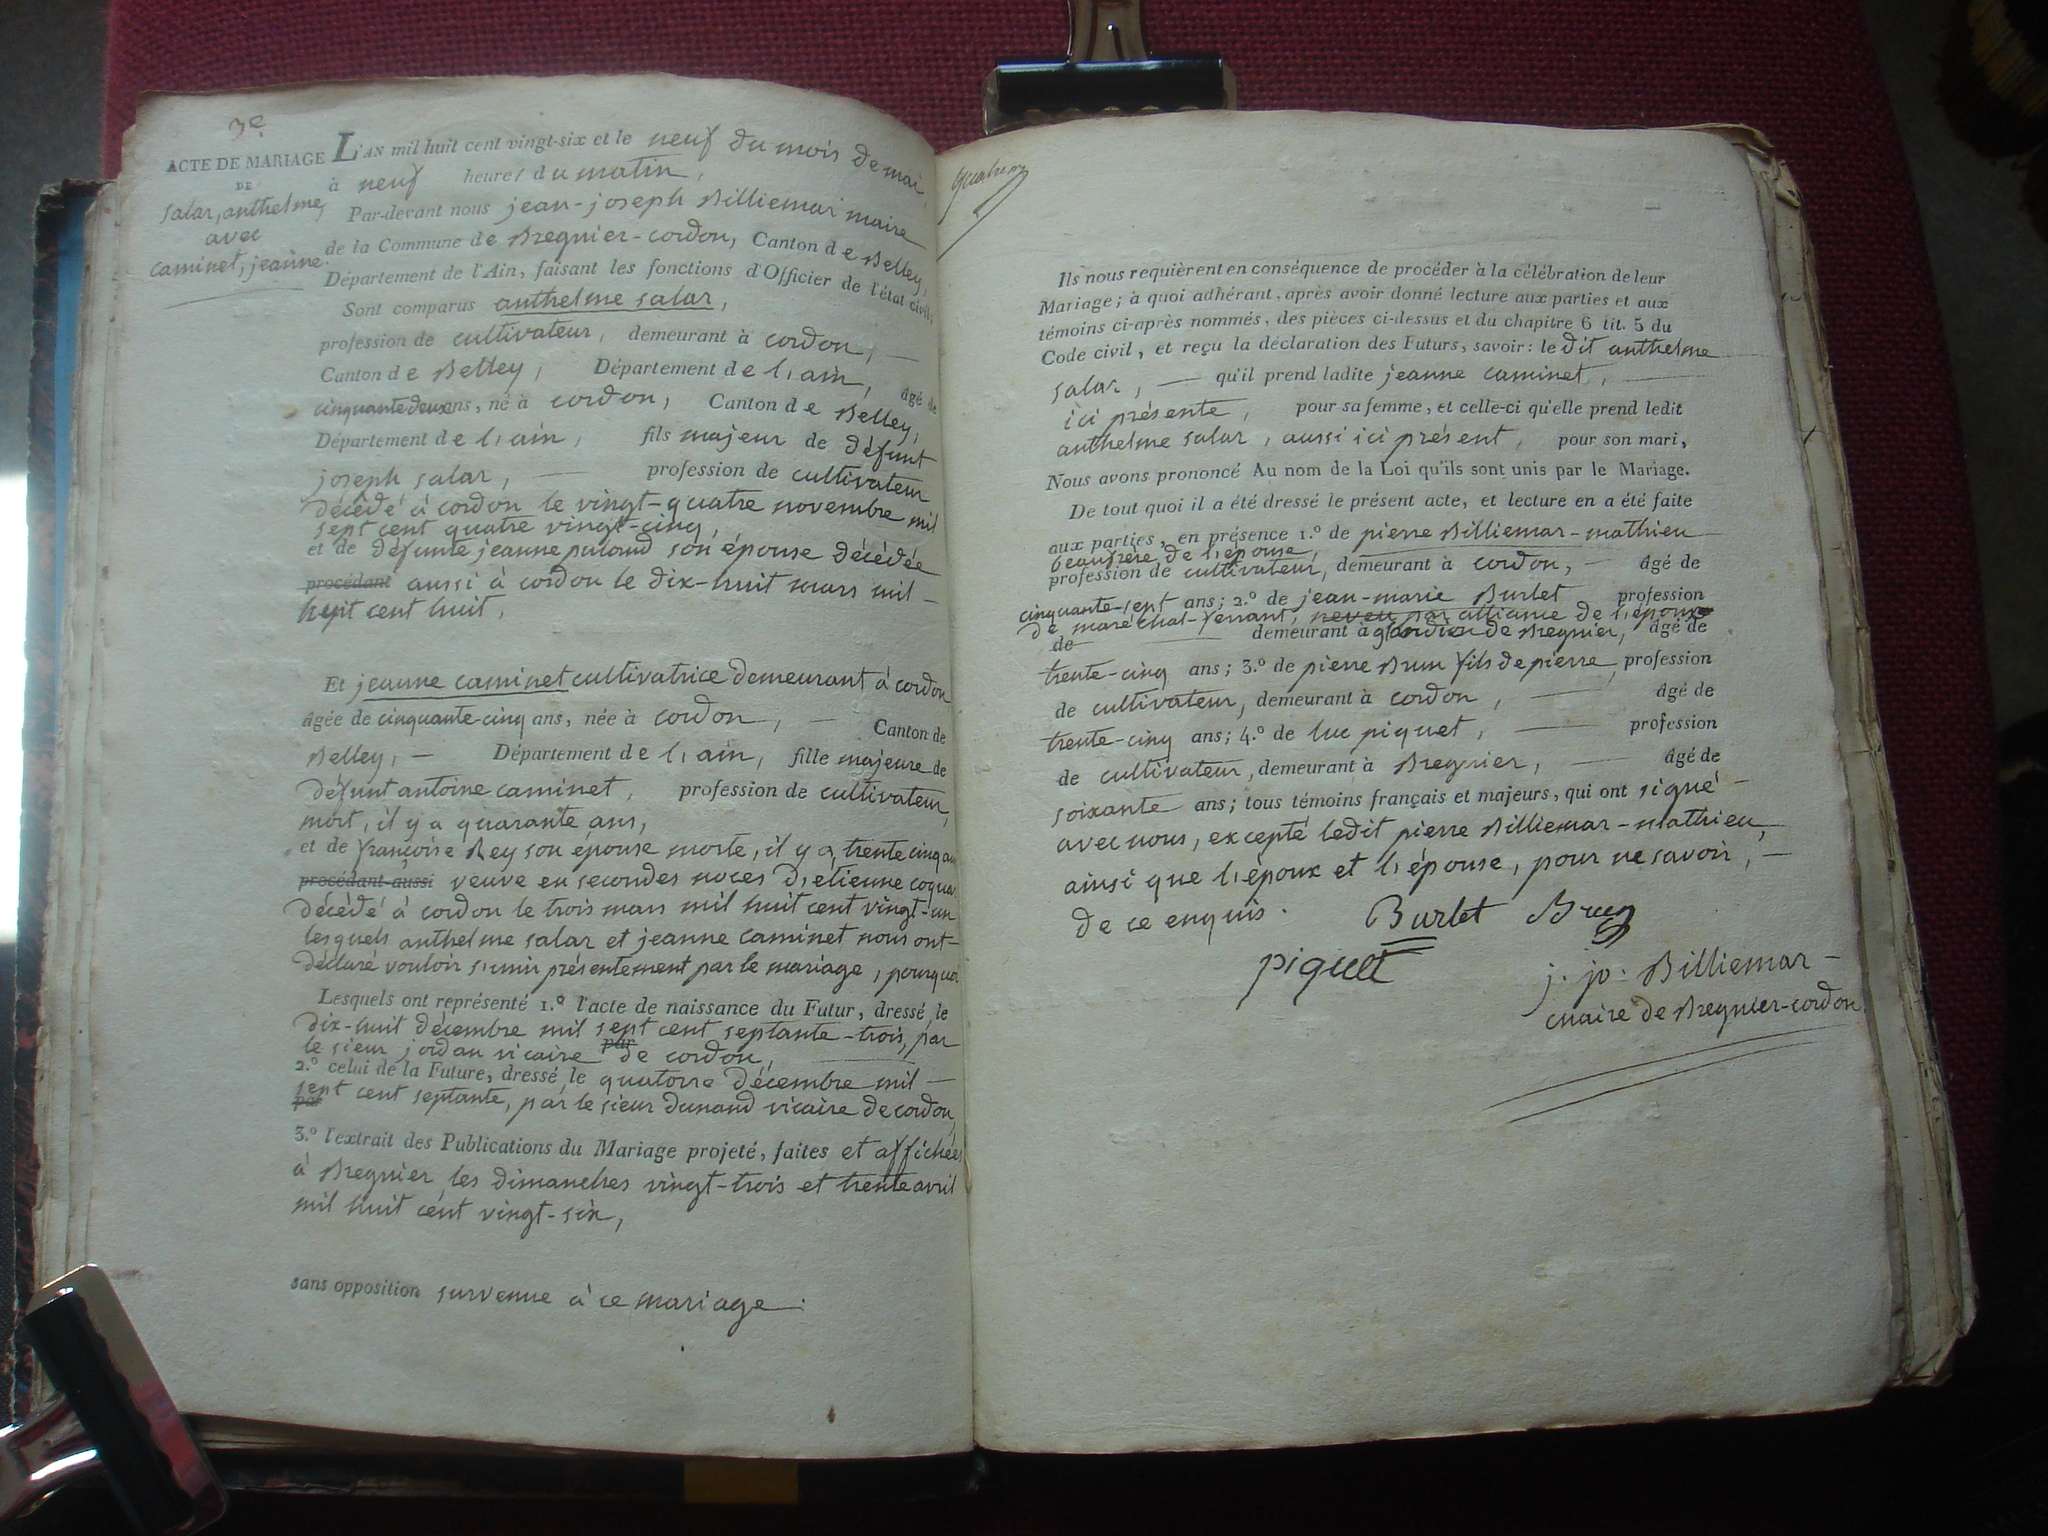 3e
ACTE DE MARIAGE
DE
salar, anthelme,
avec
caminet, jeanne.
L'AN mil huit cent vingt-six et le neuf du mois de mai,
à neuf heures du matin,
Par-devant nous jean-joseph Billiemar maire
de la Commune de Bregnier-cordon, Canton de Belley,
Département de l'Ain, faisant les fonctions d'Officier de l'état civil.
Sont comparus anthelme salar,
profession de cultivateur, demeurant à cordon, —
Canton de Belley, Département de l'ain, âgé de
cinquante deux ans, né à cordon, Canton de Belley,
Département de l'ain, fils majeur de défunt
joseph salar, — profession de cultivateur
décédé à cordon le vingt-quatre novembre mil
sept cent quatre vingt-cinq,
et de défunte jeanne son épouse décédée
procédant aussi à cordon le dix-huit mars mil —
huit cent huit,
Et jeanne caminet cultivatrice demeurant à cordon
âgée de cinquante-cinq ans, née à cordon, — Canton de
Belley, — Département de l'ain, fille majeure de
défunt antoine caminet, profession de cultivateur,
mort, il y a quarante ans,
et de françoise Rey son épouse morte, il y a, trente cinq ans
procédant aussi veuve en secondes noces d'etienne
décédé à cordon le trois mars mil huit cent vingt-un
lesquels anthelme salar et jeanne caminet nous ont-
déclaré vouloir s'unir présentement par le mariage, pourquoi
Lesquels ont représenté 1.º l'acte de naissance du Futur, dressé le
dix-huit décembre mil sept cent septante-trois, par
par
le sieur jordan vicaire de cordon,
2.º celui de la Future, dressé le quatorze décembre mil —
sept cent septante, par le sieur dunand vicaire de cordon,
par
3.º l'extrait des Publications du Mariage projeté, faites et affichées
à Bregnier les dimanches vingt-trois et trente avril
mil huit cent vingt-six,
sans opposition survenue à ce mariage.
Ils nous requièrent en conséquence de procéder à la célébration de leur
Mariage; à quoi adhérant, après avoir donné lecture aux parties et aux
témoins ci-après nommés, des pièces ci-dessus et du chapitre 6 tit. 5 du
Code civil, et reçu la déclaration des Futurs, savoir: le dit anthelme
salar, — qu'il prend ladite jeanne caminet, —
ici présente, pour sa femme, et celle-ci qu'elle prend ledit
anthelme salar, aussi ici présent, pour son mari,
Nous avons prononcé Au nom de la Loi qu'ils sont unis par le Mariage.
De tout quoi il a été dressé le présent acte, et lecture en a été faite
aux parties, en présence 1.º de pierre Billiemar-mathieu
beaufrère de l'épouse,
profession de cultivateur, demeurant à cordon, — âgé de
cinquante-sept ans; 2.º de jean-marie Burlet profession
de maréchal-ferrant, neveu par alliance de l'épouse
de demeurant à glandieu de Bregnier, âgé de
trente-cinq ans; 3.º de pierre Brun fils de pierre, profession
de cultivateur, demeurant à cordon, — âgé de
trente-cinq ans; 4.º de luc piquet, — profession
de cultivateur, demeurant à Bregnier, — âgé de
soixante ans; tous témoins français et majeurs, qui ont signé —
avec nous, excepté ledit pierre Billiemar-mathieu,
ainsi que l'époux et l'épouse, pour ne savoir, —
de ce enquis. Burlet Brun
piquet
j. jo. Billiemar —
maire de Bregnier-cordon